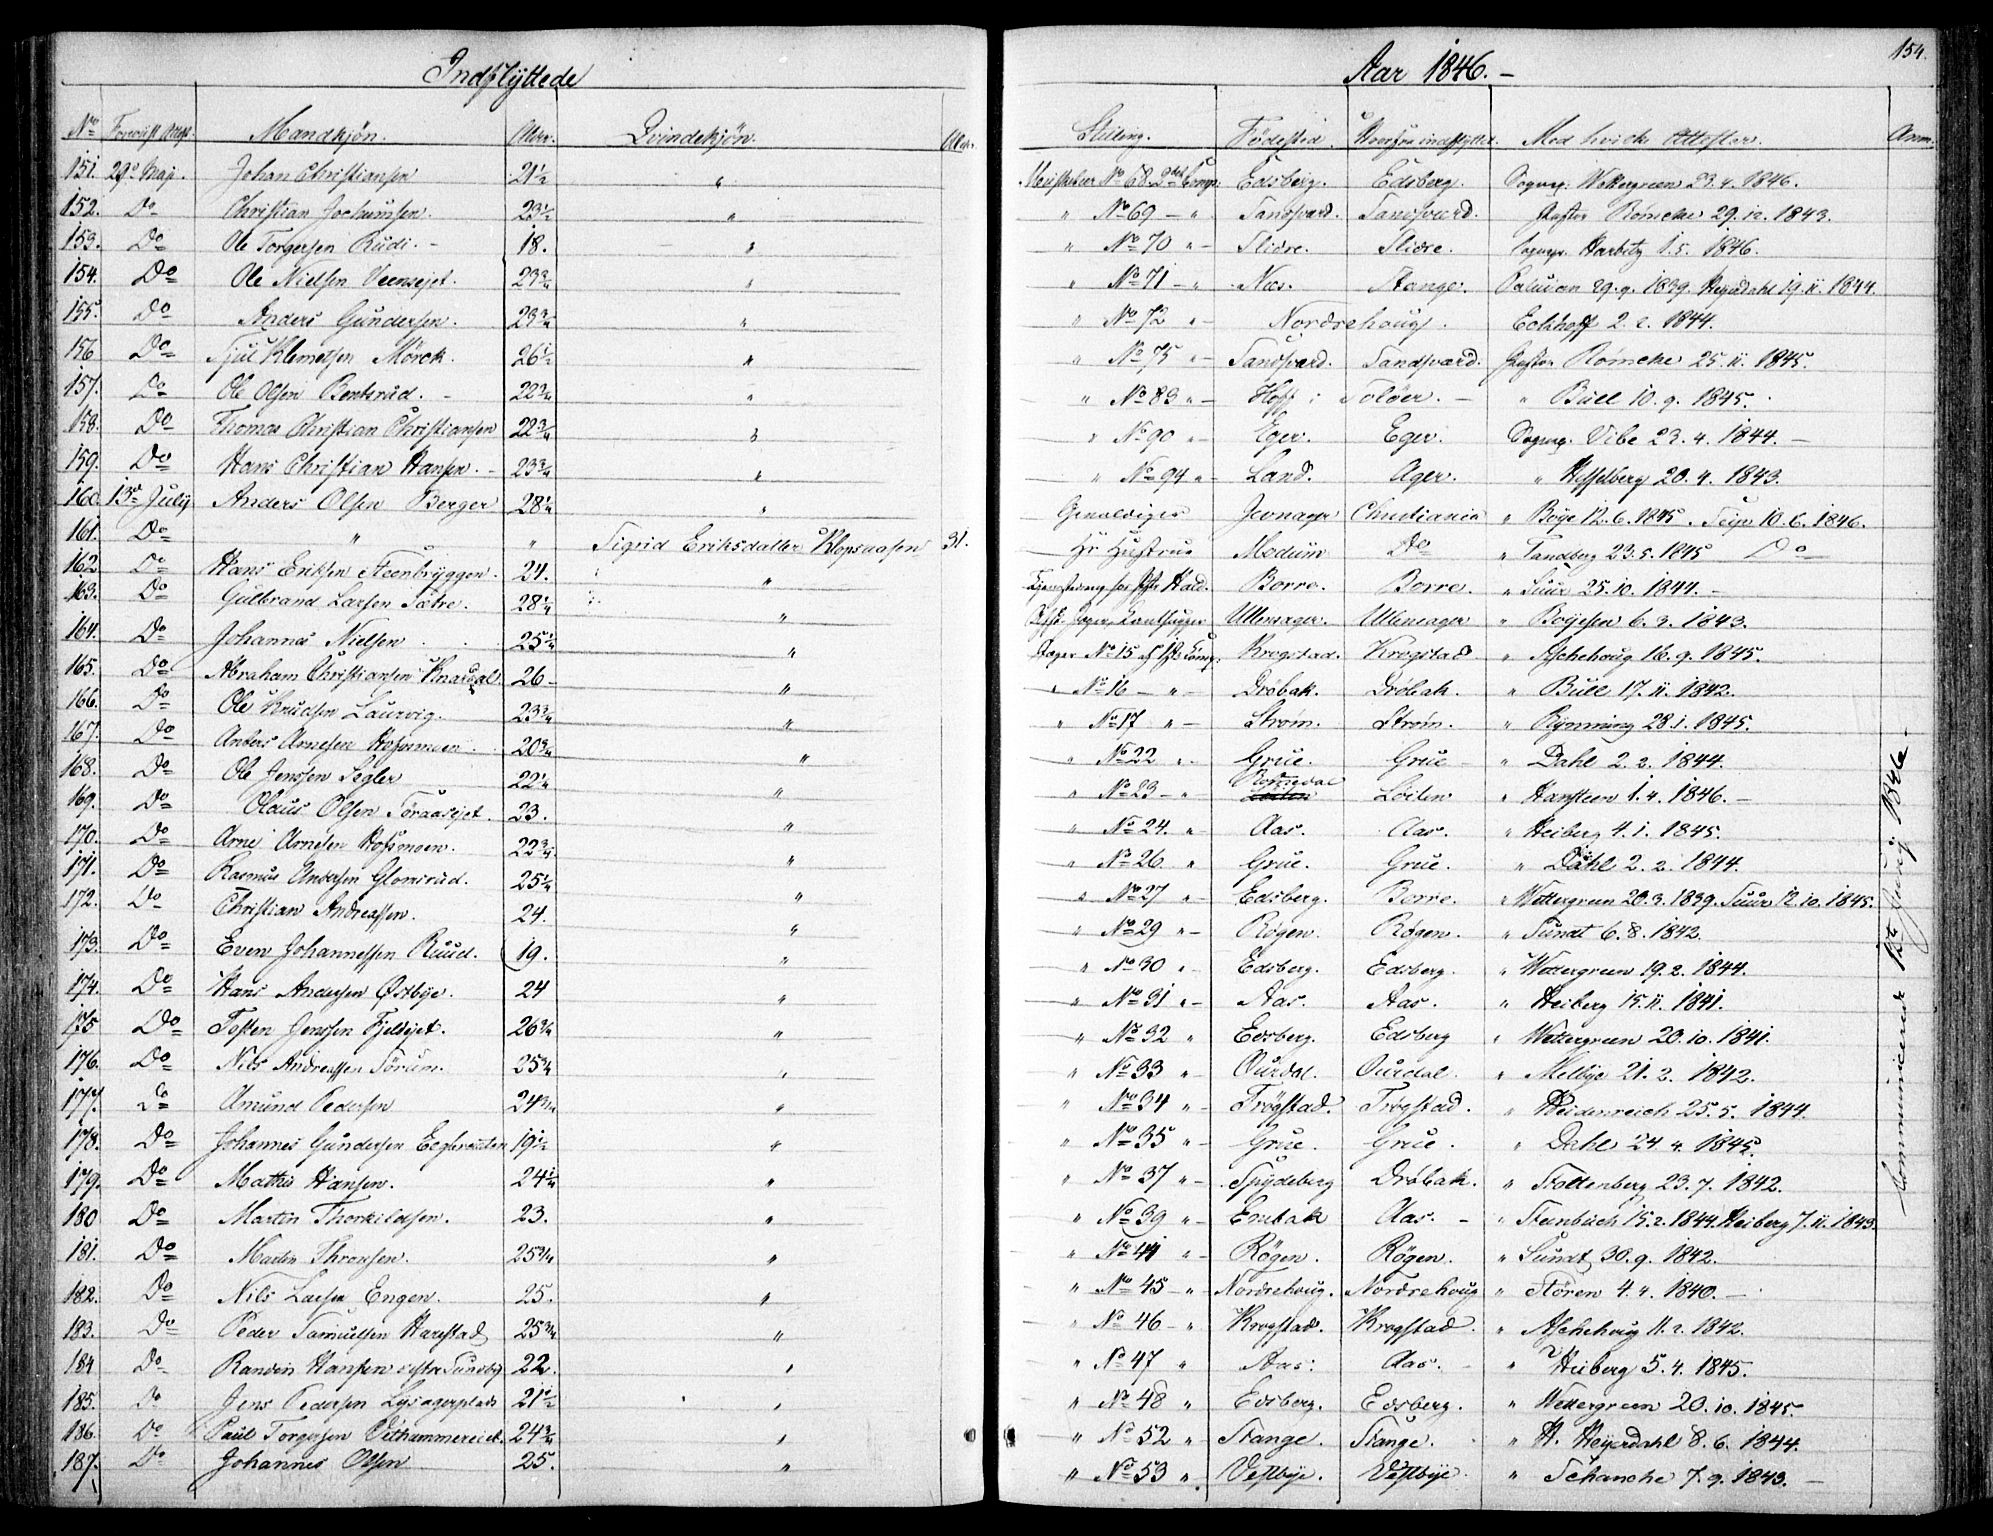 154.
Indflÿttede
Aar 1846. –
No Forevist Attest. Mandkjön. Alder. Qvindekjön. Alder. Stilling. Födested. Hvorfra indflyttet. Med hvilke Attester. Anm.
151. 29de Maj. Johan Christiansen 21½ " No 68. 2det Comp: Edsberg. Edsberg. Sognep. Wettergreen 23.4.1846.
152. Do Christian Jochumsen. 23½ " " No 69 – " Sandsværd. Sandsværd. Præster Römcke 29.12.1843.
153. Do Ole Torgersen Rudi. – 18. " " No 70 " – Slidre. Slidre. Sognep. Harbitz 1.5.1846.
154. Do Ole Nielsen Veensejet. 23¾ " " No 71 – " Næs. Stange. Paludan 29.9.1839. Heyerdahl 19.11.1844.
155. Do Anders Gundersen. 23¾ " " No 72 " – Nordrehoug. Eckhoff 2.2.1844.
156 Do Klemetsen Mörck. 26½ " " No 75 " – Sandsværd. Sandsværd. Præster Römcke 25.11.1845.
157. Do Ole Olsen Bentsrud. – 22¾ " " No 83 " – Hoff i Solöer. – " Bull 10.9.1845.
158. Do Thomas Christian Christiansen 22¾ " " No 90 " – Eger. Eger. Sognep. Vibe 23.4.1844. –
159. Do Hans Christian Hansen. – 23¾ " " No 94 " – Land. Ager. " Hesselberg 20.4.1843.
160. 13de July Anders Olsen Berger 28¼ " Gevaldiger Jevnager Christiania " Boye 12.6.1845. 10.6.1846.
161. Do " " Sigrid Eriksdatter Klopsaasen 31. Hs Hustrue Modum Do " Tandberg 23.5.1845 Do
162 Do Hans Eriksen Steenbryggen. 24. " Hald. Borre. Borre. " Suur 25.10.1844. –
163. Do Gulbrand Larsen Sætre. 28¼ " Ullensager. Ullensager " Boyesen 6.3.1843.
164. Do Johannes Nielsen 25¼ " Jæger No 15 af 1ste Comp: Krogstad. Krogstad " Aschehoug 16.9.1845.
165. Do Abraham Christiansen Knardal. 26 – " " No 16 – " – Dröbak. Dröbak. " Bull 17.11.1842.
166. Do Ole Knudsen Laurvig. 23¾ " " No 17 " – Ström. Ström. " Rynning 28.1.1845.
167. Do Anders Arnesen Hofsmoen. 20¾ " " No 22 " – Grue. Grue – " Dahl 2.2.1844.
168. Do Ole Jenssen Segler 22¼ " " No 23 – " Romedal Löiten " Hansteen 1.4.1846. –
169. Do Olaus Olsen Toraasejet. 23. " " No 24. " Aas. Aas. " Heiberg 4.1.1845.
170. Do Arne Arnesen Hofsmoen. 22¾ " " No 26 " Grue. Grue. " Dahl 2.2.1844.
171. Do Rasmus Andersen Glomsrud. 25½ " " No 27 " – Edsberg. Borre. " Wettergreen 20.3.1839. Suur 12.10.1845.
172. Do Christian Andreassen. 24. " " No 29 " – Rögen. Rögen. " Sundt 6.8.1842.
173. Do Even Johannessen Ruud. 19. " " No 30 " Edsberg. Edsberg. " Wettergreen 19.2.1844.
174. Do Hans Andersen Østbye. 24 " " No 31 " – Aas. Aas. " Heiberg 15.11.1841.
175 Do Tosten Jenssen Fjeldejet. 26¾ " " No 32 " Edsberg. Edsberg " Wettergreen 20.10.1841.
176. Do Nils Andreassen Sörum. 25¾ " " No 33 " – Ourdal. Ourdal. " Melbye 21.2.1842.
177. Do Amund Pedersen 24¾ " " No 34 " – Trögstad. Trögstad. " Heidenreich 25.5.1844.
178. Do Johannes Gundersen 19½ " " No 35 " – Grue. Grue. " Dahl 24.4.1845.
179. Do Mathis Hansen. 24¼ " " No 37 " – Spydeberg Dröbak. " Stoltenberg 23.7.1842.
180 Do Martin Thorkildsen. 23. " " No 39 " – Enebak Aas. – " Steenbuch 15.2.1844. Heiberg 7.11.1843.
181. Do Martin Thronsen. 25¾ " " No 44 " – Rögen. Rögen. " Sundt 30.9.1842.
182. Do Nils Larsen Engen. 25. " " No 45 – " Nordrehoug. Nordrehoug " Stören 4.4.1840. –
183. Do Peder Samuelsen Harestad 25¾ " " No 46 " – Krogstad. Krogstad. " Aschehoug 11.2.1842.
184 Do Hansen Sundby 22. " " No 47 " Aas. Aas. – " Heiberg 5.4.1845.
185. Do Jens Pedersen Lysagerplads 21½ " " No 48 " Edsberg. Edsberg. " Wettergreen 20.10.1845.
186. Do Paul Torgersen 24¾ " " No 52 " Stange. Stange. " H. Heyerdahl 8.6.1844.
187. Do Johannes Olsen 25. " " No 53 " Vestbye. Vestbye. " Schanche 7.9.1843. –
Communiceret 1846. –